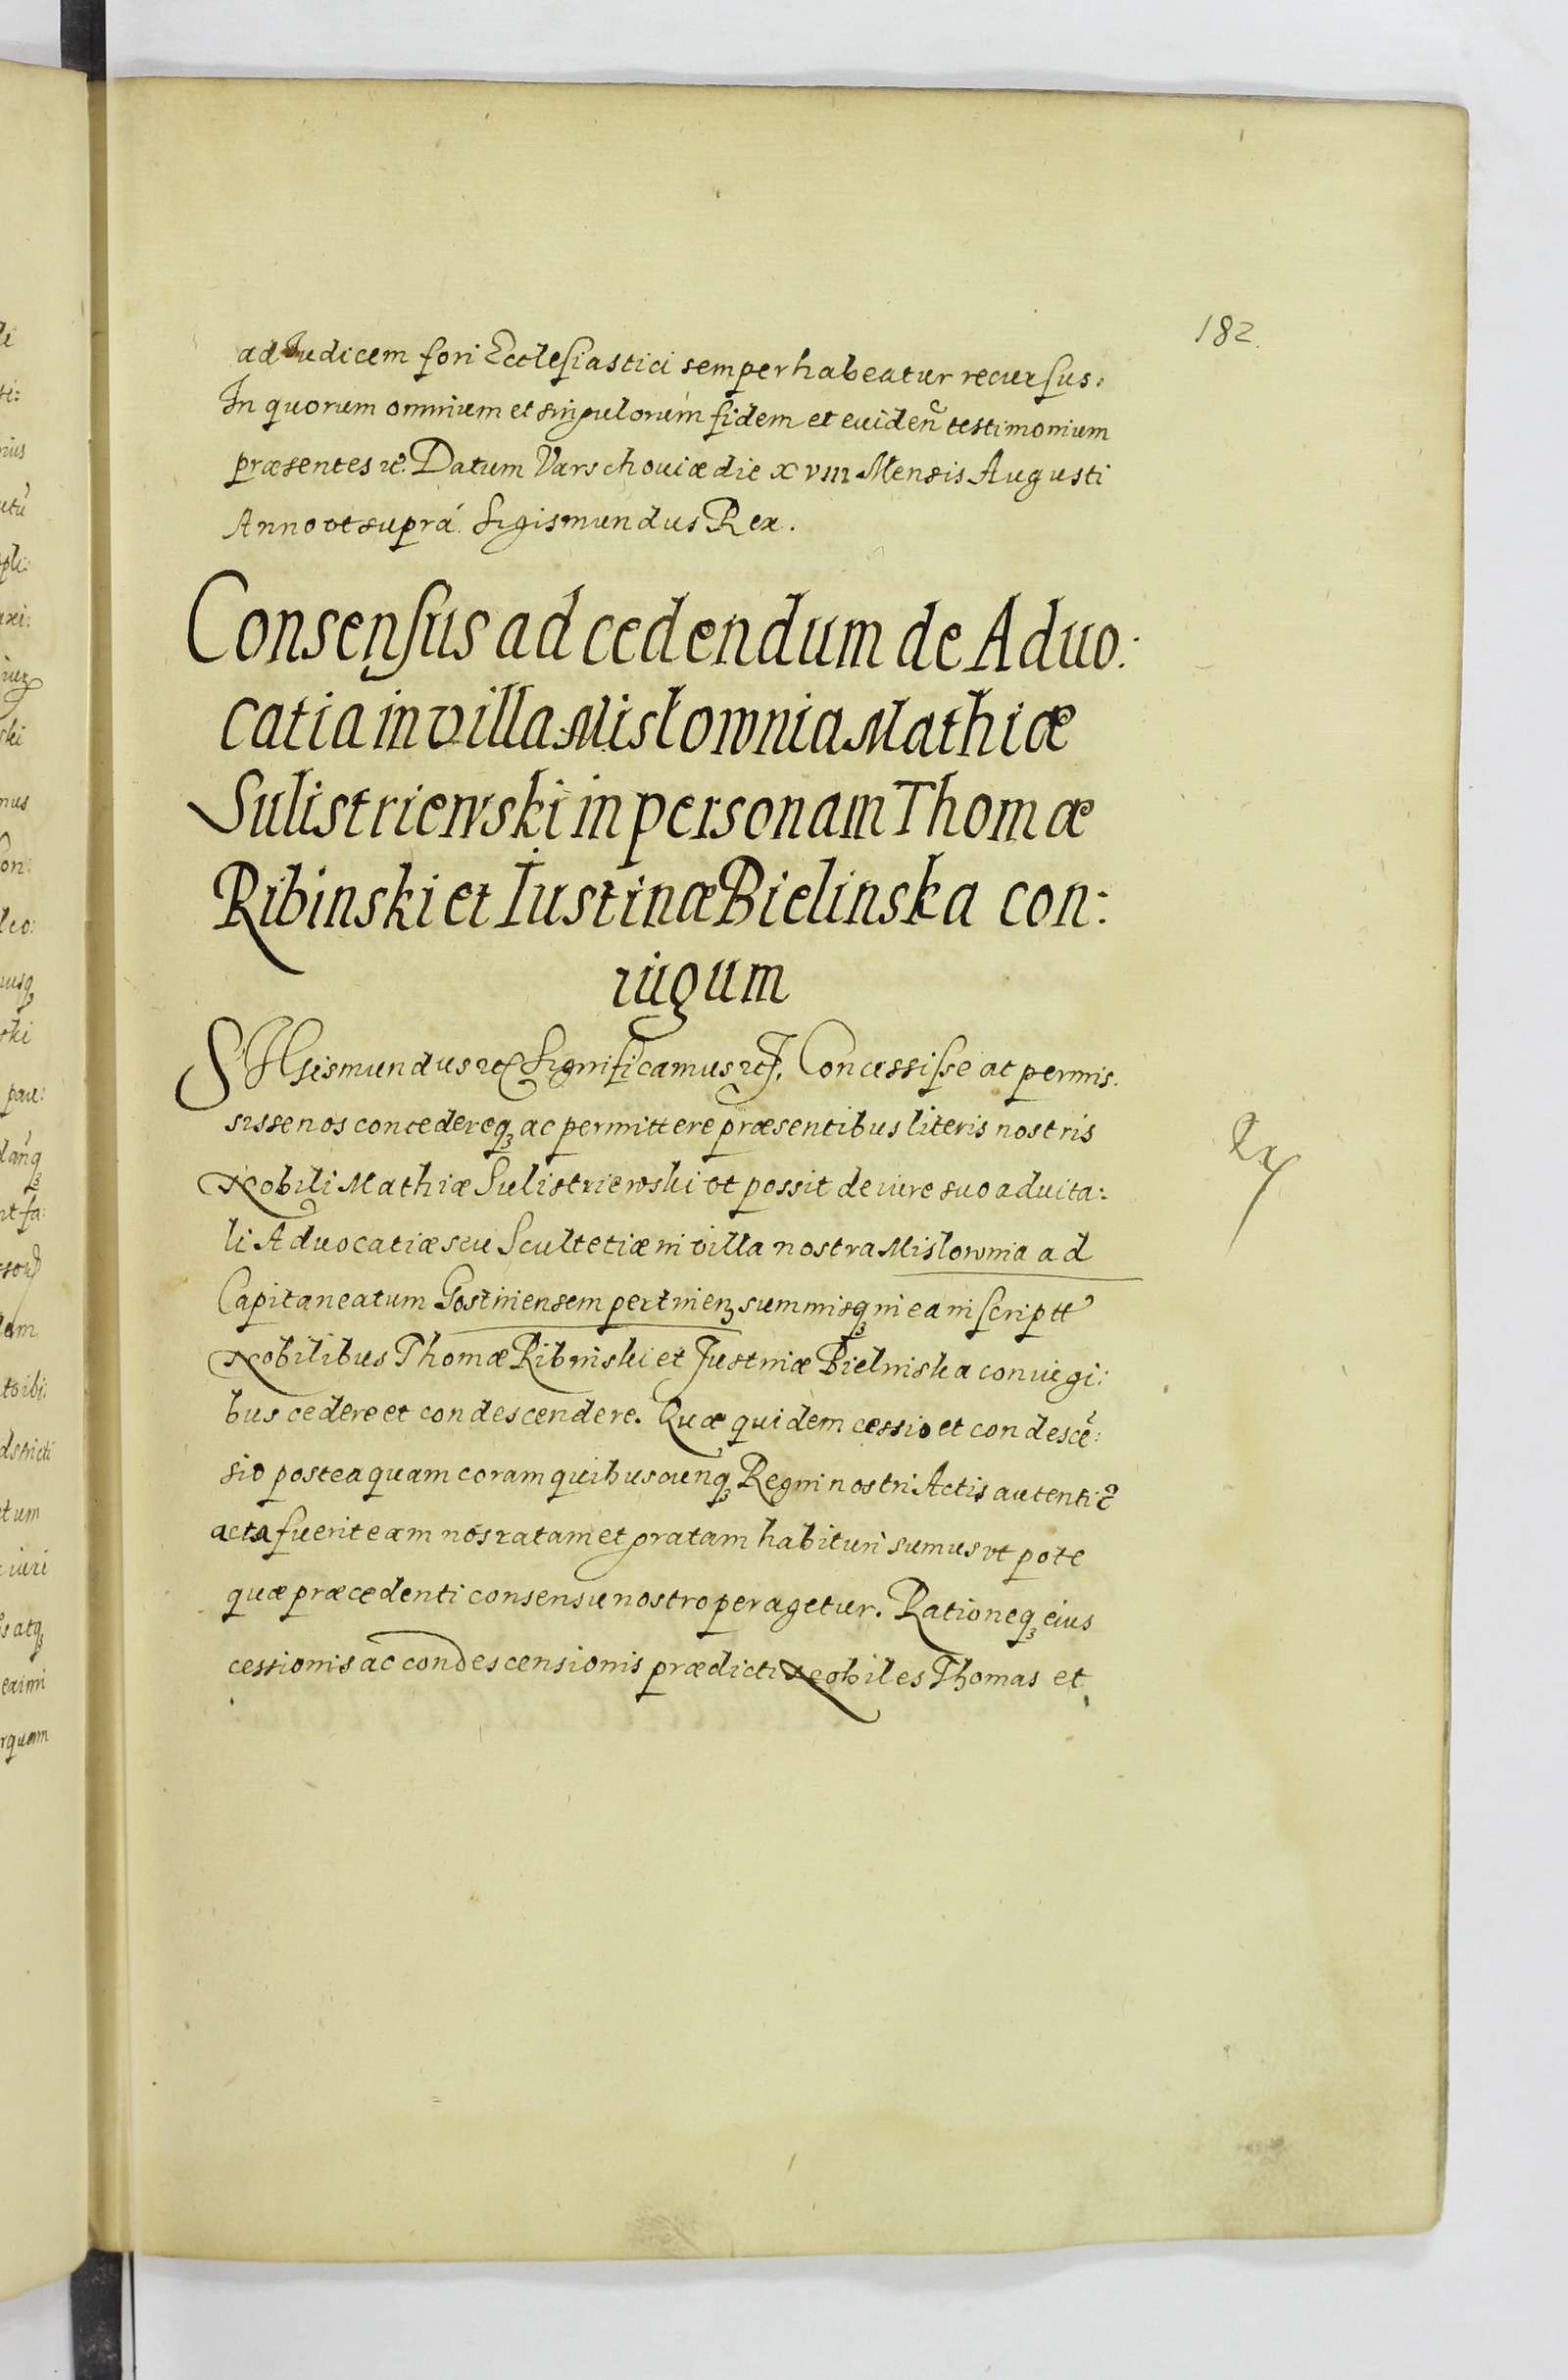 182.
ad Iudicem fori Ecclesiastici semper habeatur recursus.
In quorum omnium et singulorum fidem et euiden̄ testimonium
præsentes &c. Datum Varschouiæ die xviii Mensis Augusti
Anno vt suprá. Sigismundus Rex.
Consensus ad cedendum de Aduo:
catia in villa Mislownia Mathiæ
Sulistriewski in personam Thomæ
Ribinski et Iustinæ Bielinska con:
iugum
SIgismundus &c Significamus &c. Concessisse ac permis.
sisse nos concedereq3 ac permittere præsentibus literis nostris
Nobili Mathiæ Sulistriewski vt possit de iure suo aduita:
li Aduocatiæ seu Scultetiæ in villa nostra Mislownia ad
Capitaneatum Gostinensem pertinen3 summisq3 in ea inscriptt
Nobilibus Thomæ Ribinski et Justinæ Bielinska coniugi:
bus cedere et condescendere. Quæ quidem cessio et condescē:
sio postea quam coram quibuscunq3 Regni nostri Actis autentic̄
acta fuerit eam nos ratam et gratam habituri sumus vt pote
quæ præcedenti consensu nostro peragetur. Rationeq3 eius
cessionis ac condescensionis prædicti Nobiles Thomas et